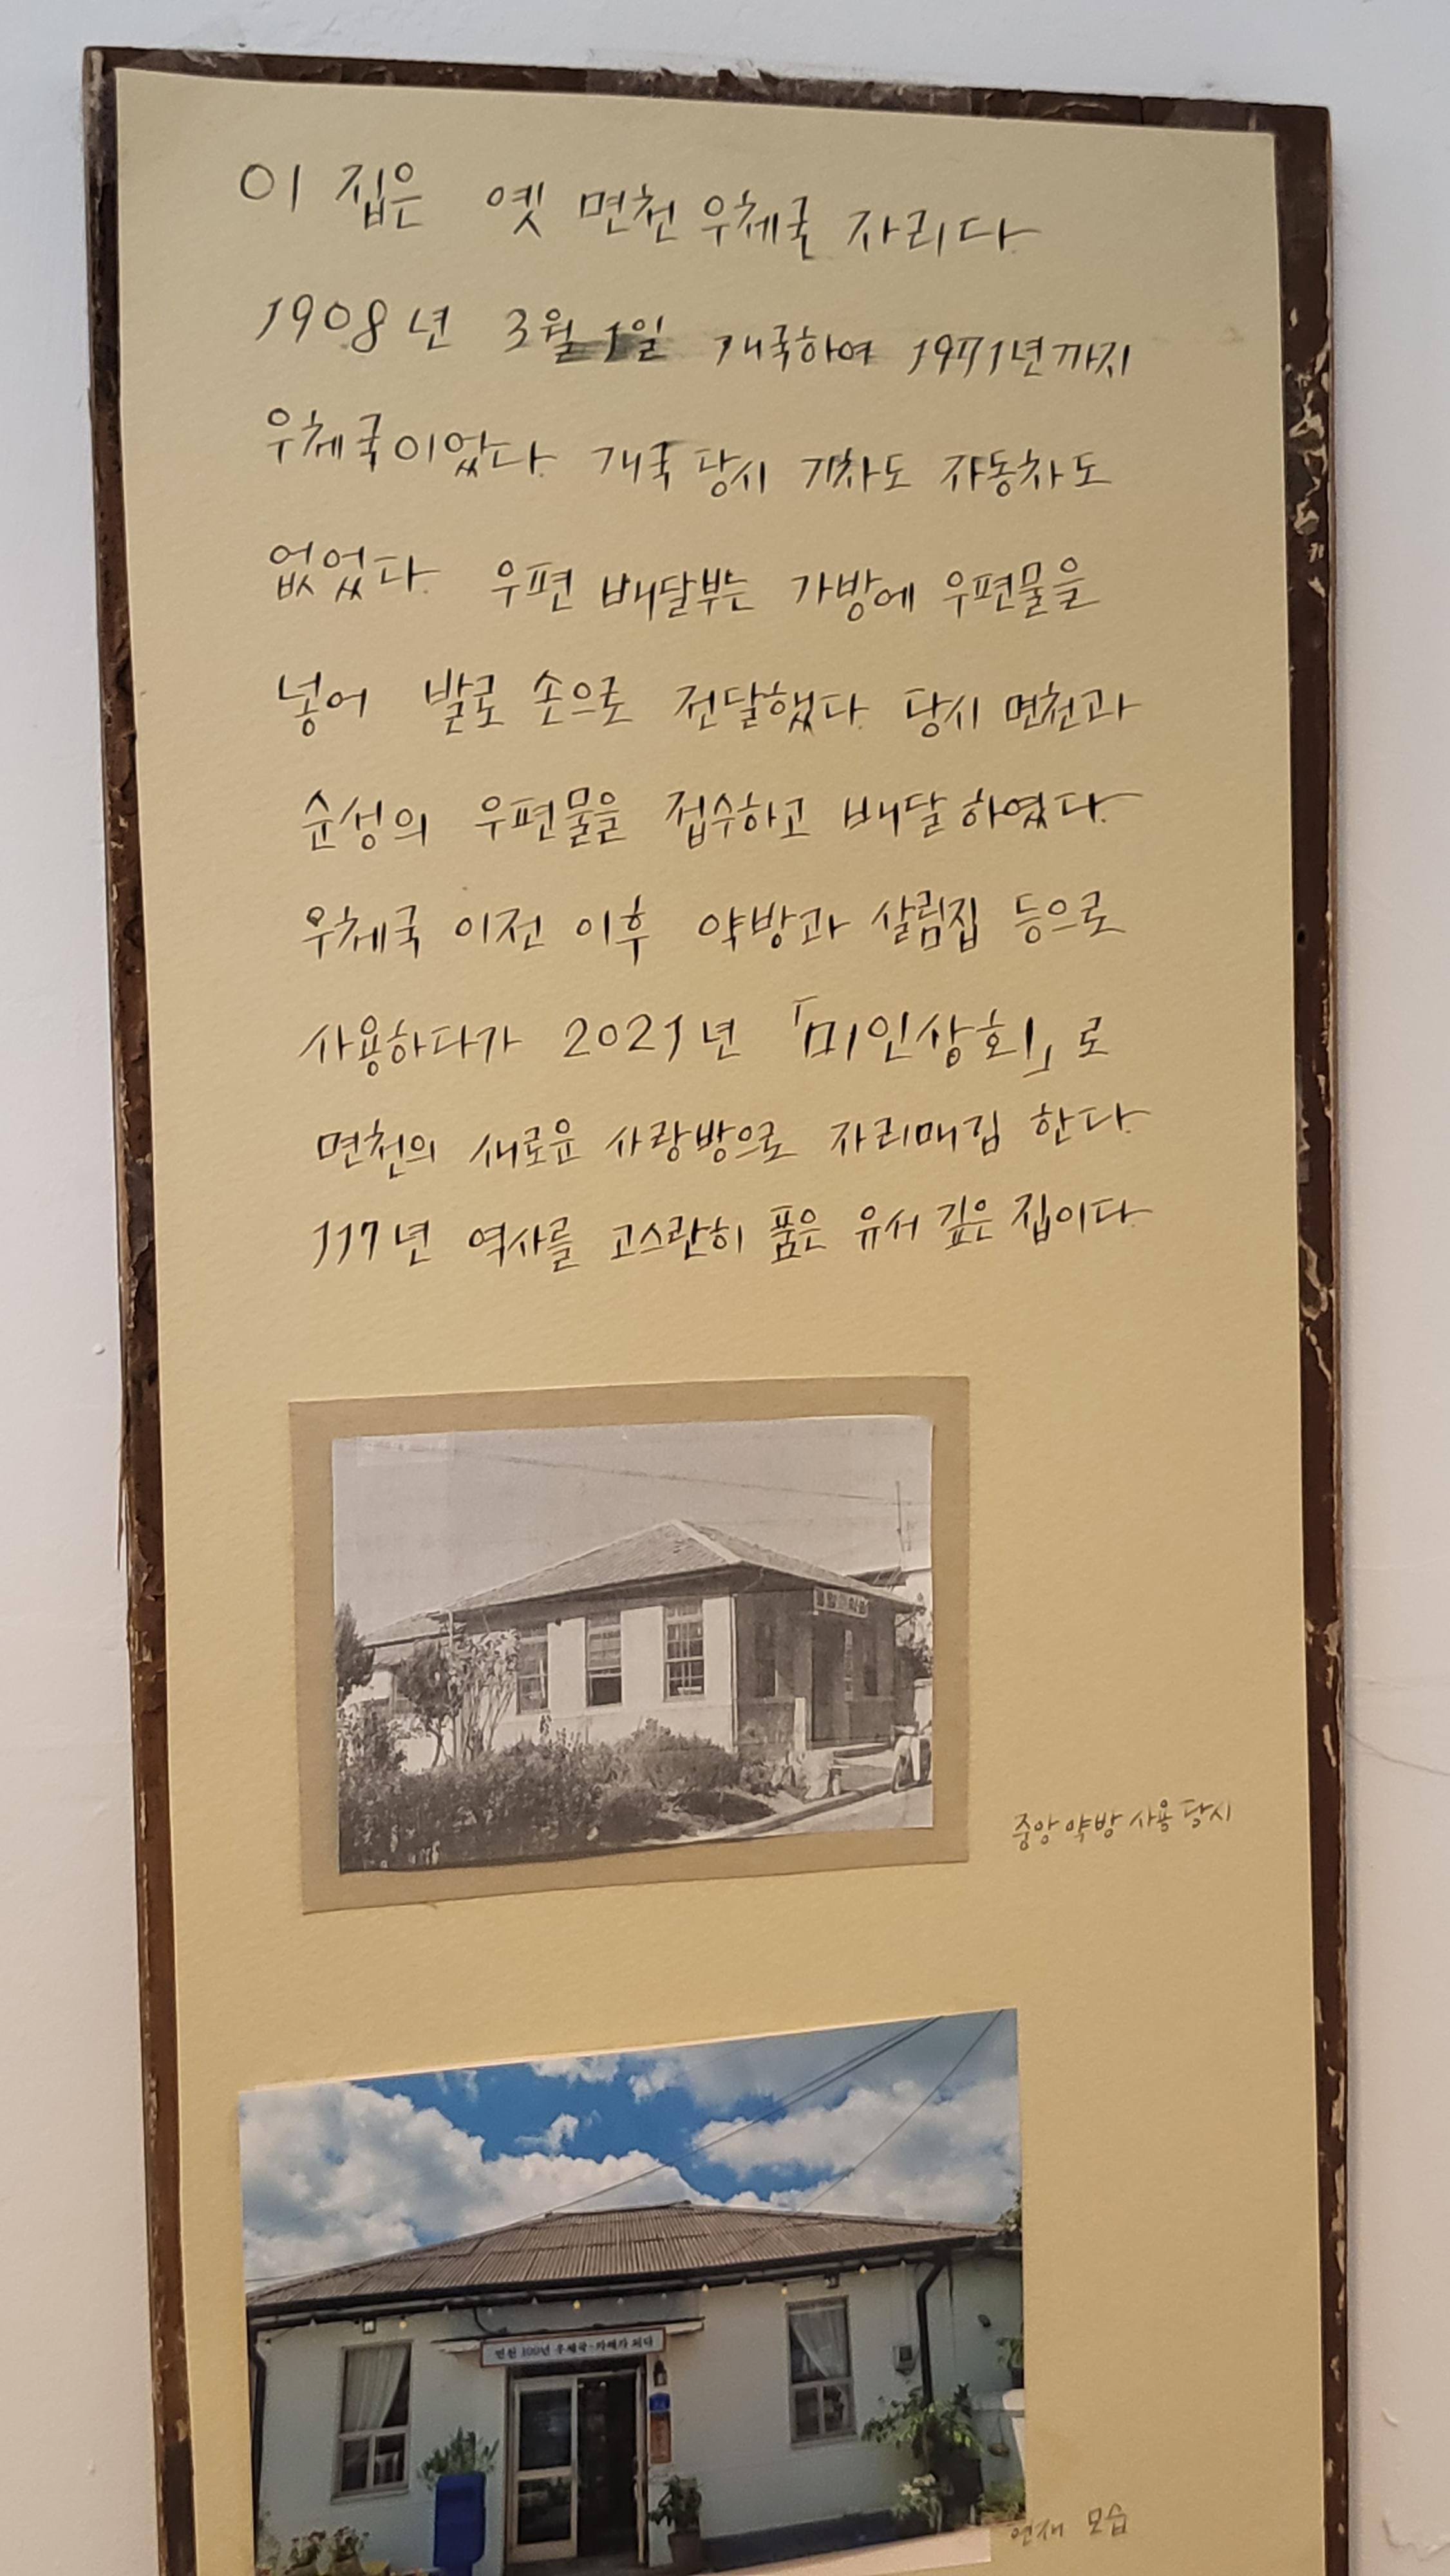 이 집은 옛 면천 우체국 자리다
1908년 3월 1일 개국하여 1971년까지
우체국이었다. 개국 당시 기차도 자동차도
없었다. 우편 배달부는 가방에 우편물을
넣어 발로 손으로 전달했다. 당시 면천과
순성의 우편물을 접수하고 배달하였다.
우체국 이전 이후 약방과 살림집 등으로
사용하다가 2021년 「미인상회」로
면천의 새로운 사랑방으로 자리매김 한다.
117년 역사를 고스란히 품은 유서 깊은 집이다.
중앙약방 사용 당시
면천 100년 우체국-카페가 되다
현재 모습